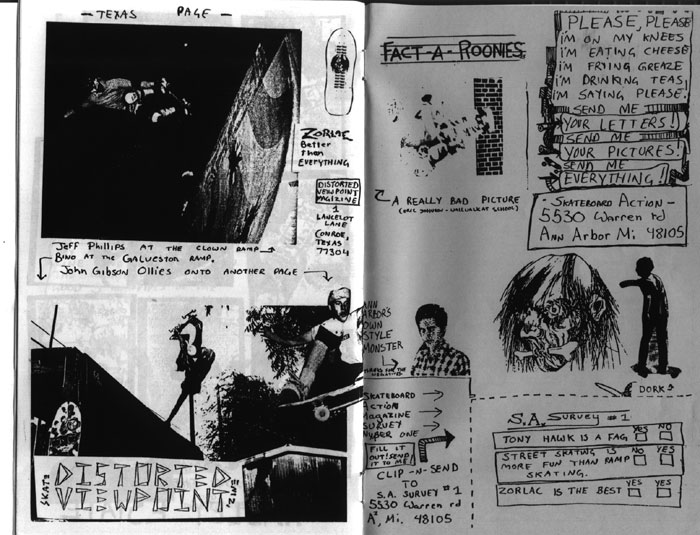 — TEXAS PAGE —
ZORLAC
Better
than
EVERYTHING
DISTORTED
VIEWPOINT
MAGIZINE
1
LANCELOT
LANE
CONROE,
TEXAS
77304
JEFF PHILLIPS AT THE CLOWN RAMP
BINO AT THE GALVESTON RAMP.
JOHN GIBSON OLLIES ONTO ANOTHER PAGE
SKATE
DISTORTED
VIEWPOINT
FACT-A-ROONIES
A REALLY BAD PICTURE
PLEASE, PLEASE
I'M ON MY KNEES
I'M EATING CHEESE
I'M FRYING GREAZE
I'M DRINKING TEAS
I'M SAYING PLEASE.
SEND ME
YOUR LETTERS!
SEND ME
YOUR PICTURES!
SEND ME
EVERYTHING!
- SKATEBOARD ACTION -
5530 Warren rd
ANN ARBOR Mi. 48105
ANN
ARBOR'S
OWN
STYLE
MONSTER
DORK
SKATEBOARD
ACTION
MAGAZINE
SURVEY
NUMBER ONE
FILL IT
OUT! SEND
IT TO ME!
CLIP-N-SEND
TO
S.A. SURVEY #1
5530 WARREN rd
A², Mi. 48105
S.A. SURVEY #1
TONY HAWK IS A FAG YES NO
STREET SKATING IS NO YES
MORE FUN THAN RAMP
SKATING.
ZORLAC IS THE BEST YES YES